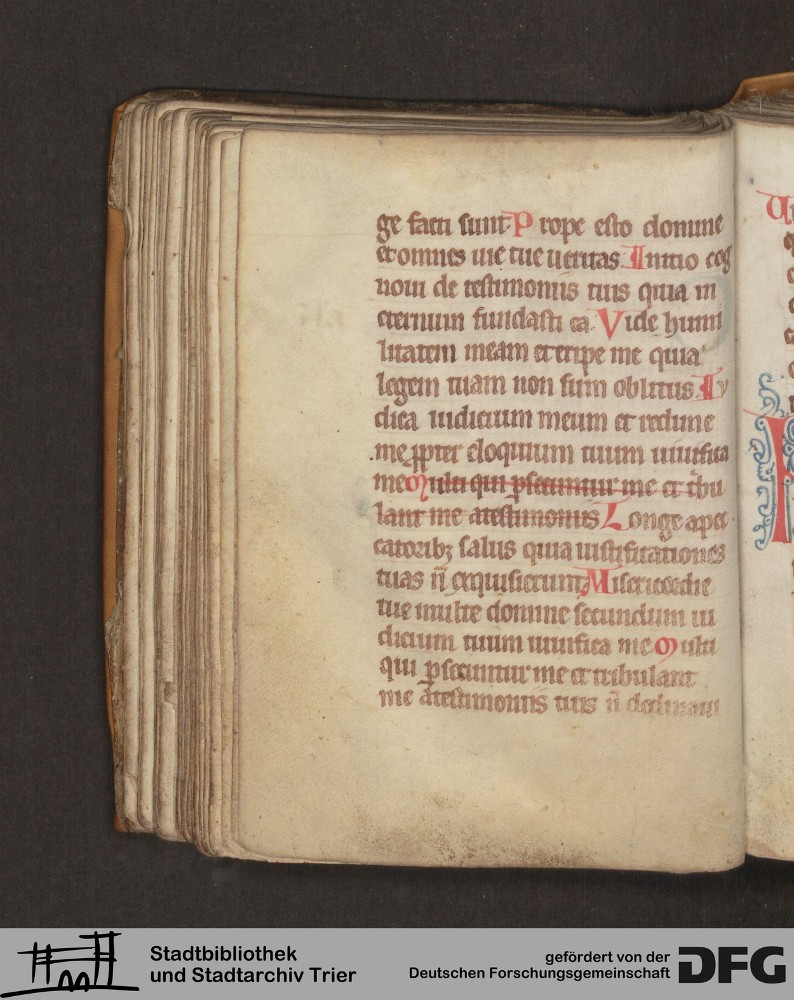 ge facti sunt. Prope esto domine
et omnes uie tue ueritas. Initio cog
noui de testimoniis tuis quia in
eternum fundasti ea. Vide humi
litatem meam et eripe me quia
legem tuam non sum oblitus. Iu
dica iudicium meum et redime
me ꝓpter eloquium tuum uiuifica
me. Multi qui ꝑsecuntur me et tͥbu
lant me a testimoniis Longe a pec
catoribꝫ salus quia iustificationes
tuas n̄ exquisierunt. Misericordie
tue multe domine secundum iu
dicium tuum uiuifica me. Multi
qui ꝑsecuntur me et tribulant
me a testimoniis tuis n̄ declinaui
Stadtbibliothek
und Stadtarchiv Trier
gefördert von der
Deutschen Forschungsgemeinschaft
DFG